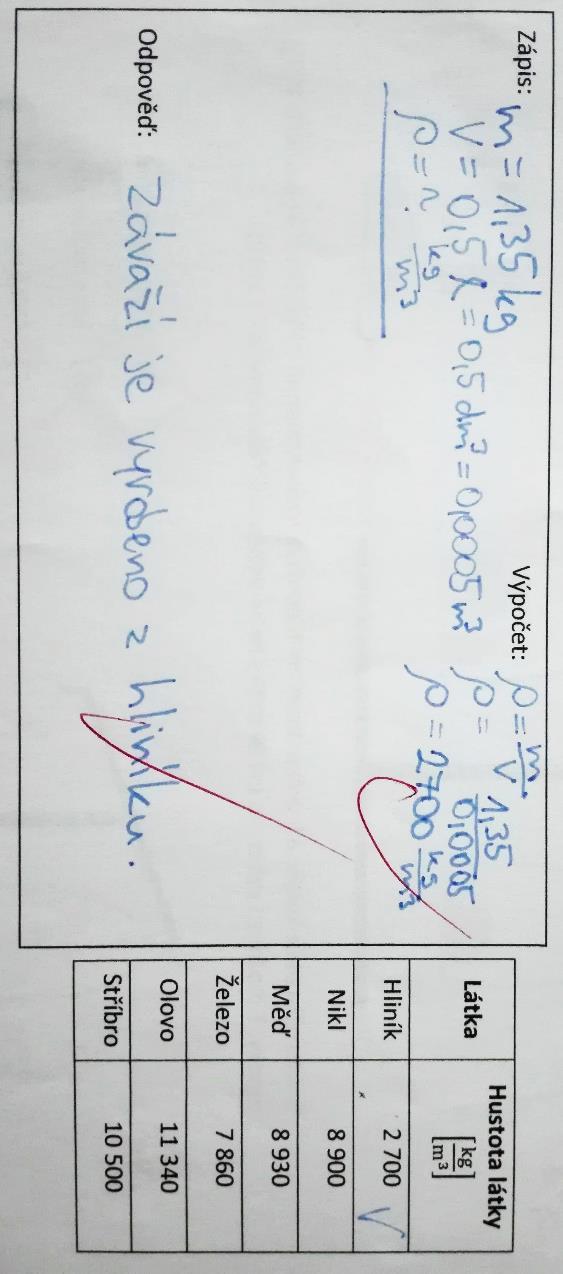 Zápis: m = 1,35 kg
V = 0,5 l = 0,5 dm³ = 0,0005 m³
ρ = ? kg/m³
Výpočet: ρ = m/V
ρ = 1,35/0,0005
ρ = 2700 kg/m³
Odpověď: Závaží je vyrobeno z hliníku.
Látka Hustota látky [kg/m³]
Hliník 2 700
Nikl 8 900
Měď 8 930
Železo 7 860
Olovo 11 340
Stříbro 10 500